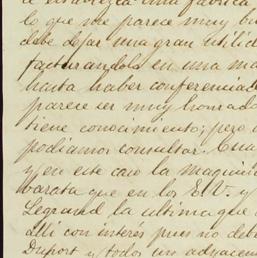 de establezca una fabrica
lo que me parece muy bu
debe dejar una gran utilid
facturandola en una ma
hasta haber conferenciad
parece ser muy honrado
tiene conocimiento; pero
podiamos consultar. Cua
y en este caso la maquin
barata que en los E. U. y
Legrand la ultima que
Lili con interés pues no deb
Duport y todos sus adyacen